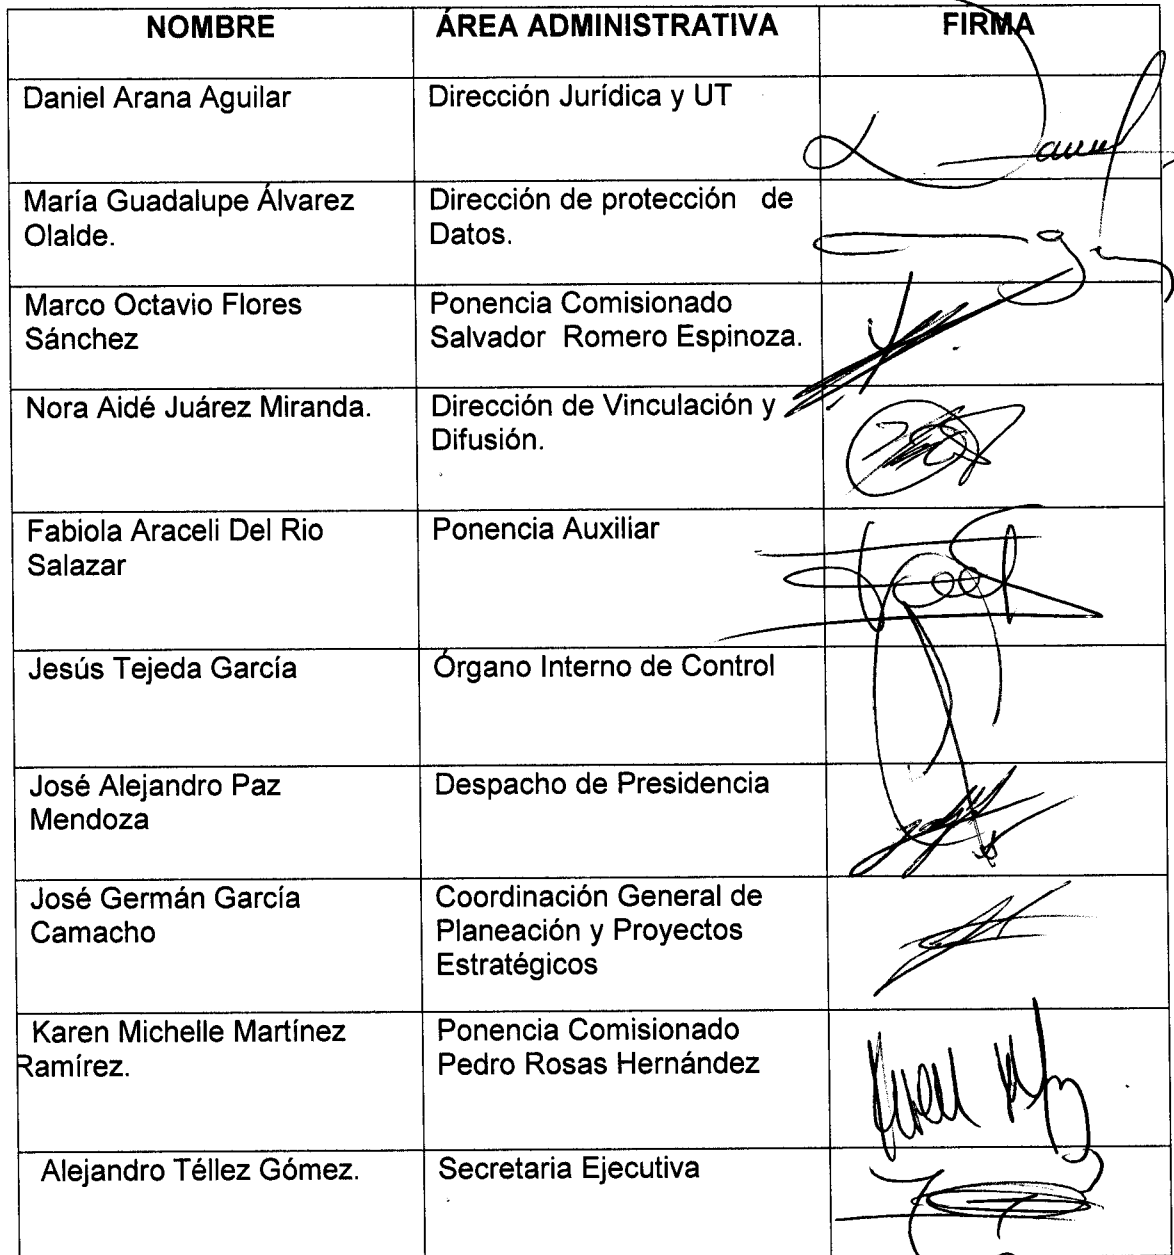 NOMBRE ÁREA ADMINISTRATIVA FIRMA
Daniel Arana Aguilar Dirección Jurídica y UT
María Guadalupe Álvarez Dirección de protección de
Olalde. Datos.
Marco Octavio Flores Ponencia Comisionado
Sánchez Salvador Romero Espinoza.
Nora Aidé Juárez Miranda. Dirección de Vinculación y
Difusión.
Fabiola Araceli Del Rio Ponencia Auxiliar
Salazar
Jesús Tejeda García Órgano Interno de Control
José Alejandro Paz Despacho de Presidencia
Mendoza
José Germán García Coordinación General de
Camacho Planeación y Proyectos
Estratégicos
Karen Michelle Martínez Ponencia Comisionado
Ramírez. Pedro Rosas Hernández
Alejandro Téllez Gómez. Secretaria Ejecutiva